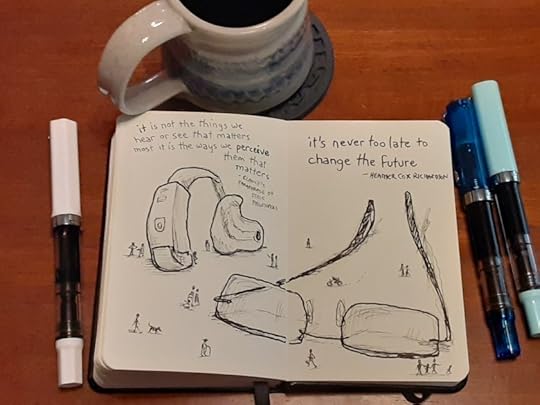 it is not the things we
hear or see that matters
most it is the ways we perceive
them that
matters
it's never too late to
change the future
- HEATHER COX RICHARDSON